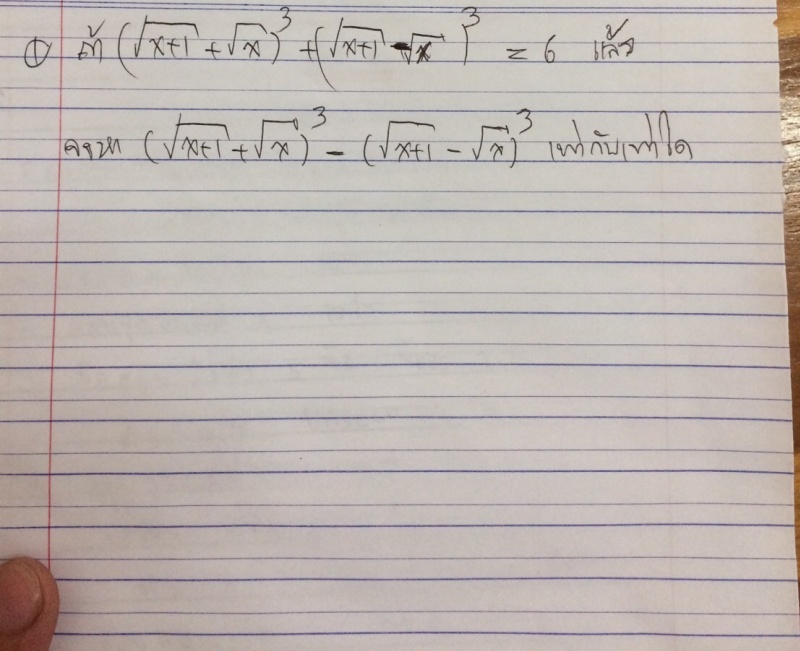 ① ถ้า (√x+1 + √x)³ + (√x+1 - √x)³ = 6 แล้ว
จงหา (√x+1 + √x)³ - (√x+1 - √x)³ เท่ากับเท่าใด